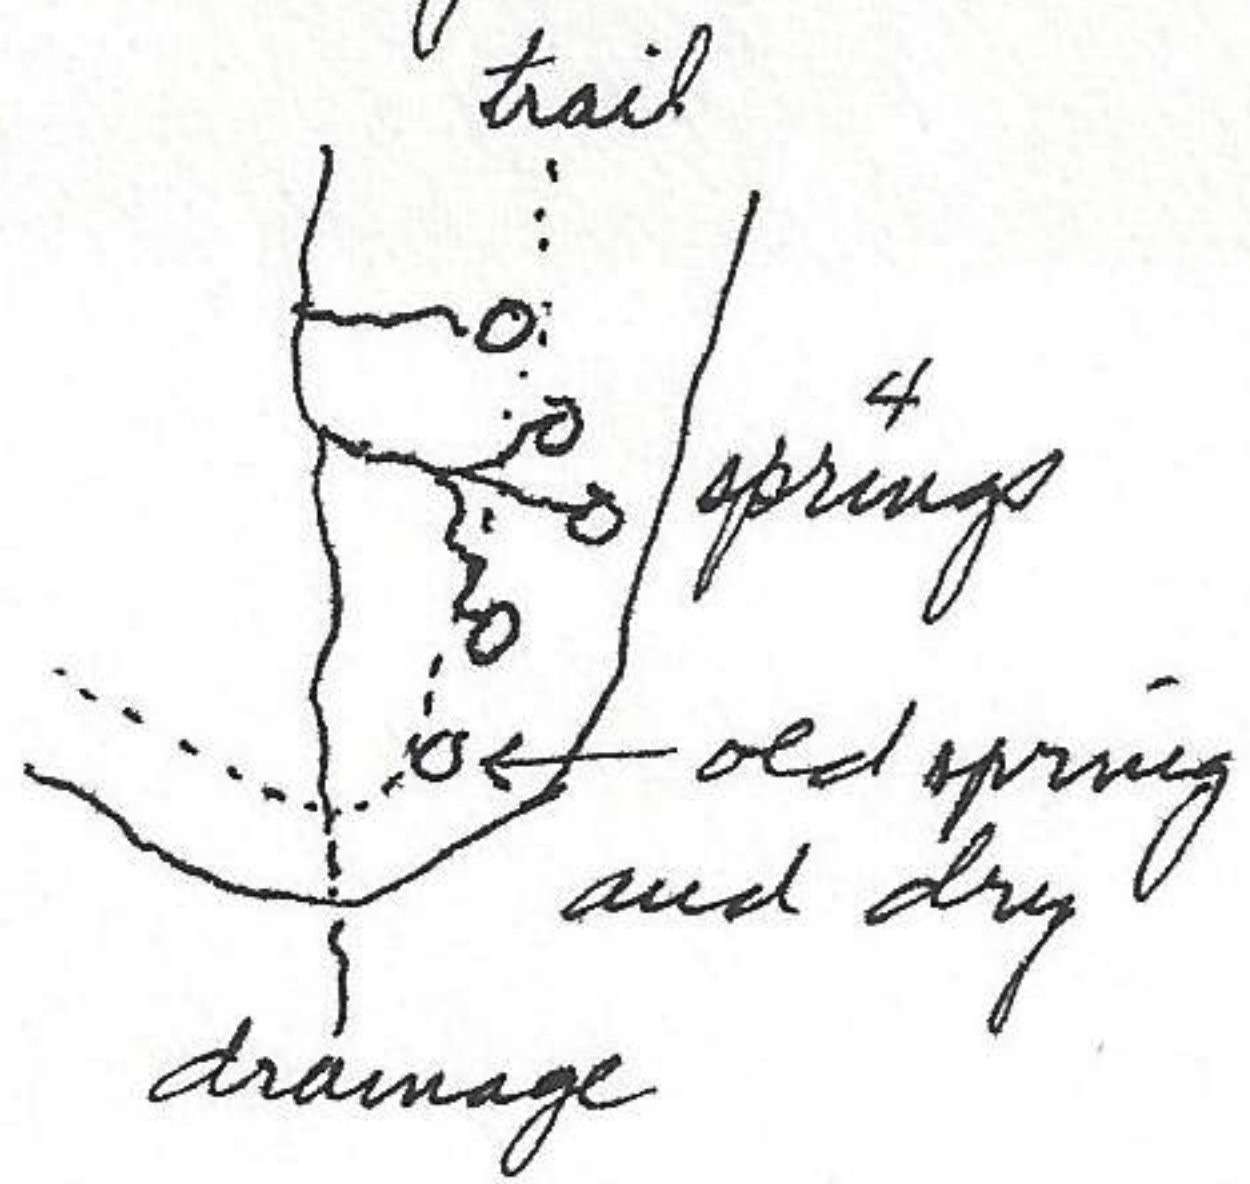 trail
4
springs
old spring
and dry
drainage